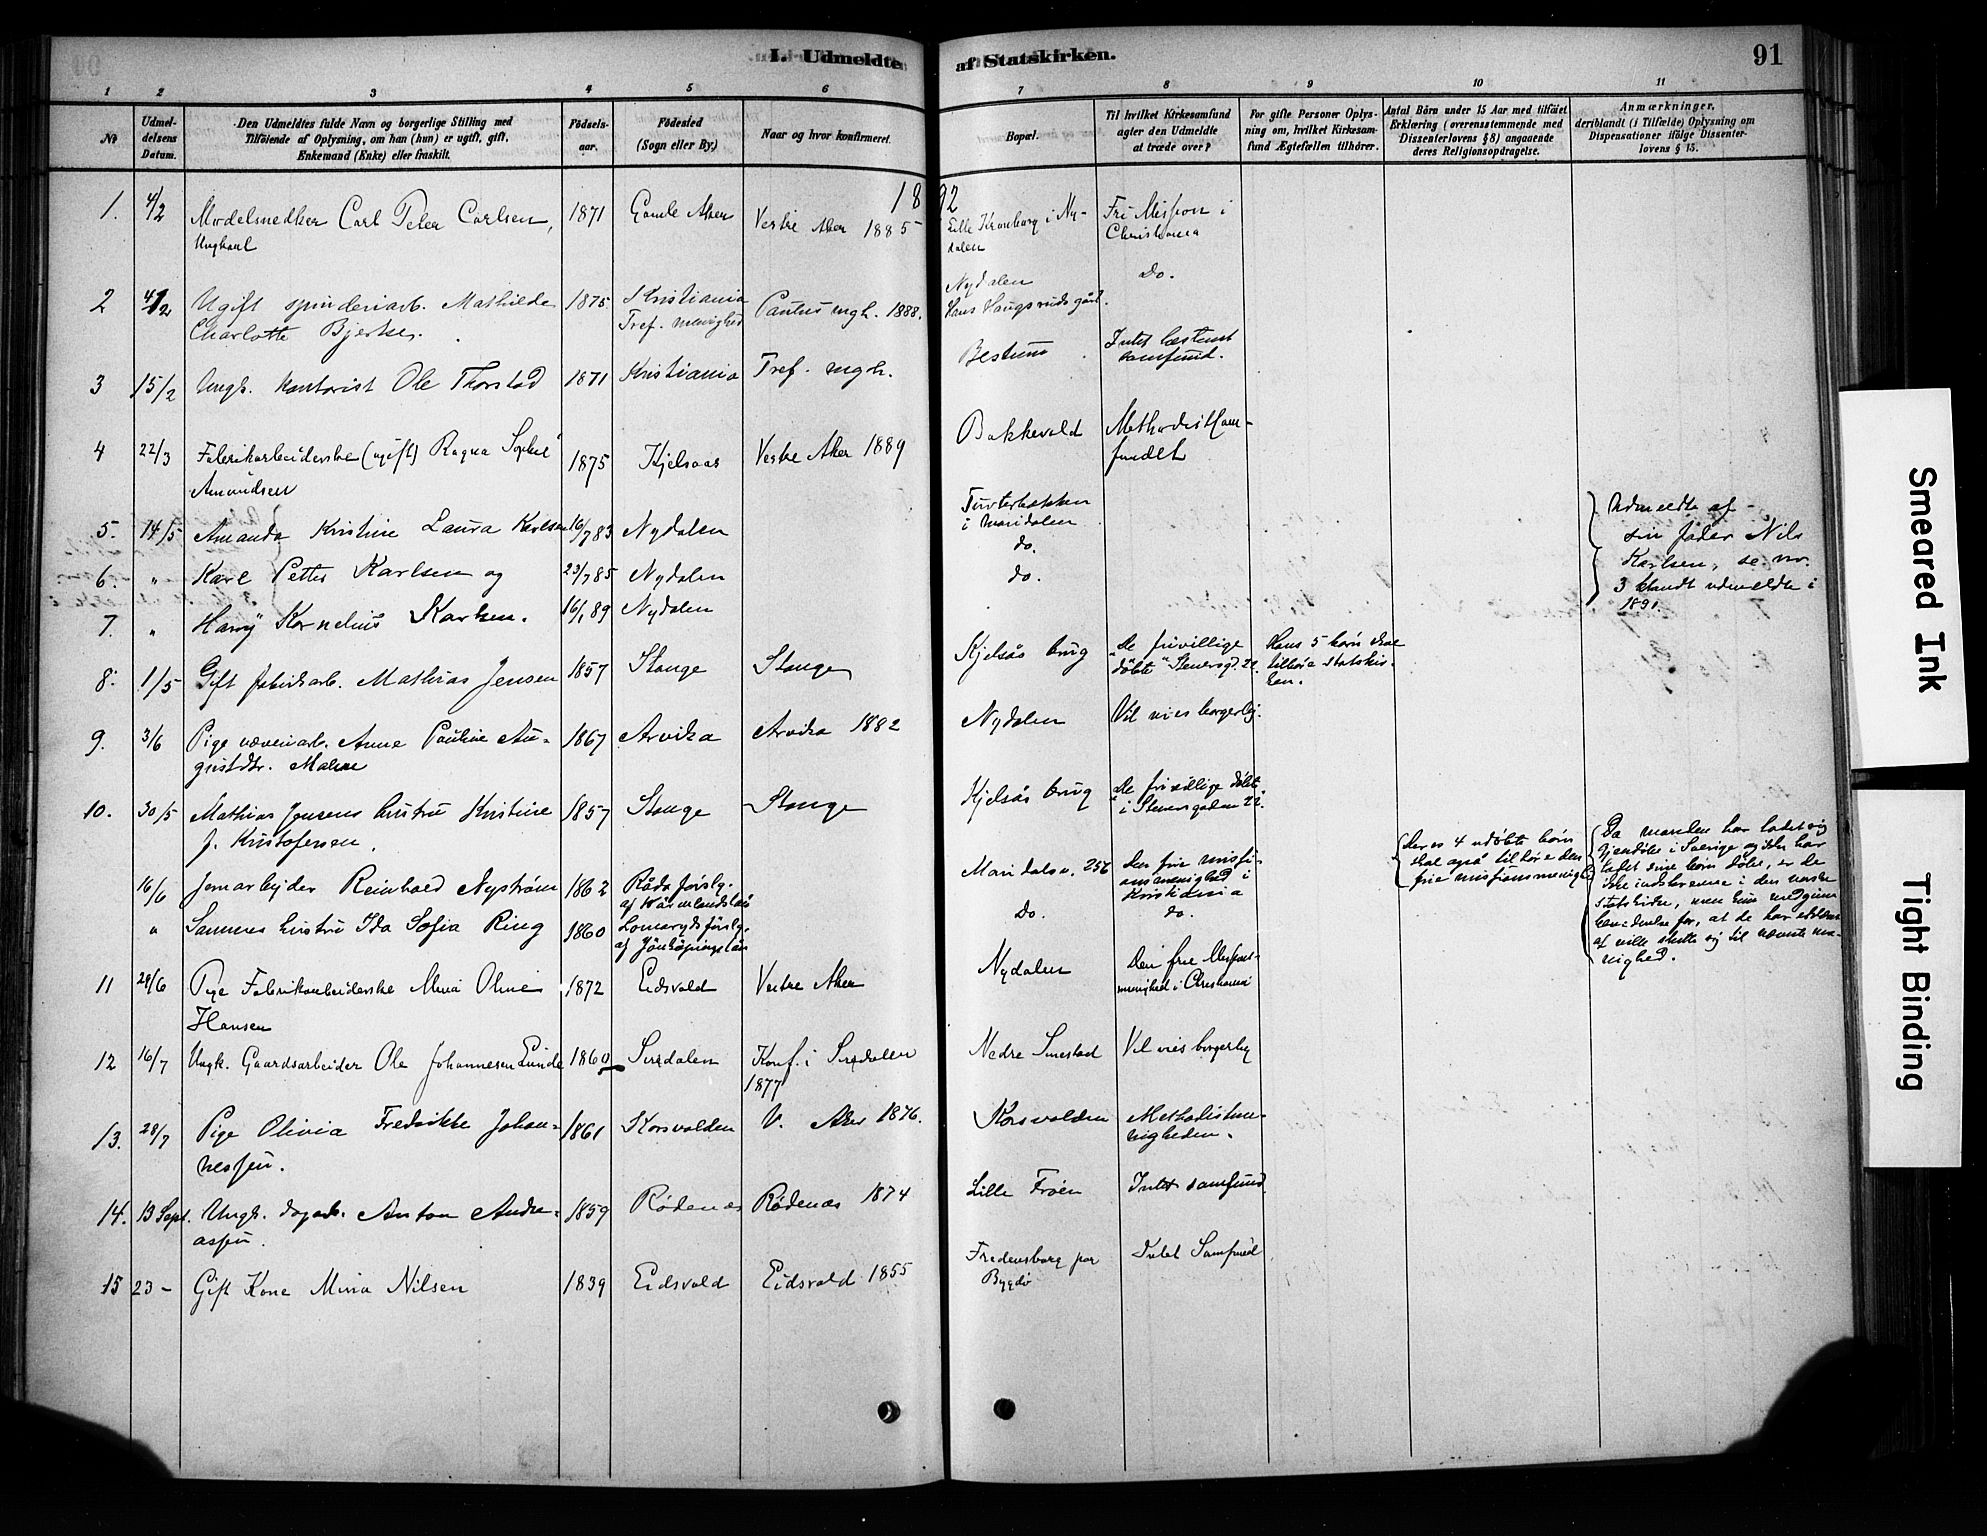 I. Udmeldte af Statskirken.
91
1 2 3 4 5 6 7 8 9 10 11
№
Udmel-
delsens
Datum.
Den Udmeldtes fulde Navn og borgerlige Stilling med
Tilföiende af Oplysning, om han (hun) er ugift, gift,
Enkemand (Enke) eller fraskilt.
Födsels-
aar.
Födested
(Sogn eller By.)
Naar og hvor konfirmeret.
Bopæl.
Til hvilket Kirkesamfund
agter den Udmeldte
at træde over?
For gifte Personer Oplys-
ning om, hvilket Kirkesam-
fund Ægtefællen tilhörer.
Antal Börn under 15 Aar med tilföiet
Erklæring (overensstemmende med
Dissenterlovens § 8) angaaende
deres Religionsopdragelse.
Anmærkninger,
deriblandt (i Tilfælde) Oplysning om
Dispensationer ifölge Dissenter-
lovens § 15.
1892
1. 4/2 Modelsnedker Carl Peter Carlsen, 1871 Gamle Aker Vestre Aker 1885 Lille Kronborg i Ny- Fri Mission i
Ungkarl dalen Christiania
2 4/2 Ugift spinderiarb. Mathilde 1875 Kristiania Paulus mgh. 1888. Nydalen Do.
Charlotte Bjerke. Tref. menighed Hans Haugsruds gård.
3 15/2 Ungk. kontorist Ole Thorstad 1871 Kristiania Tref. mgh. Bestum Intet bestemt
samfund.
4 22/3 Fabrikarbeiderske (ugift) Ragna Sophie 1875 Kjelsaas Vestre Aker 1889 Bakkevold Methodistsam-
Amundsen fundet
5. 14/5 Amanda Kristine Laura Karlsen 16/7 83 Nydalen Turterbakken Udmeldte af
i Maridalen sin fader Nils
6. " Karl Petter Karlsen og 23/7 85 Nydalen do. Karlsen, se no.
7. " Harry Kornelius Karlsen. 16/1 89 Nydalen do. 3 blandt udmeldte i
1891.
8. 1/5 Gift fabrikarb. Mathias Jensen 1857 Stange Stange Kjelsås brug "De frivillige Hans 5 børn skal
døbte" Stenersgd. 22. tilhøre statskir-
ken.
9. 3/6 Pige væveriarb. Anne Pauline Au- 1867 Arvika Arvika 1882 Nydalen Vil vies borgerlig.
gustdtr. Malm
10. 30/5 Mathias Jensens hustru Kristine 1857 Stange Stange Kjelsås brug "De frivillige døbte"
f. Kristofersen. i Stenersgaden 22.
16/6 Jernarbejder Reinhold Nystrøm 1862 Råda forslg. Maridalsv. 256 Den frie missi- Deres 4 udøbte børn Da manden har ladet sig
af Värmlandslän onsmenighed i skal også tilhøre den gjendøbe i Sverige og ikke har
Kristiania frie missionsmenighed ladet sine børn døbe, er de
" Sammes hustru Ida Sofia Ring 1860 Lomaryds forslg. do. do. ikke indskrevne i den norske
af Jönköpings län statskirke, men kun
af ville slutte sig til nævnte me-
nighed.
11 29/6 Pige Fabrikarbeiderske Mina Oline 1872 Eidsvold Vestre Aker Nydalen Den frie Missions-
Hansen menighed i Christiania
12 16/7 Ungk. Gaardsarbeider Ole Johannesen Lunde 1860 Sirdalen Konf. i Sirdalen Nedre Smestad Vil vies borgerlig
1877
13. 28/7 Pige Olivia Fredrikke Johan- 1861 Korsvolden V. Aker 1876. Korsvolden Methodistme-
nessen. nigheden.
14. 13 Sept. Ungk. dagarb. Anton Andre- 1859 Rødenæs Rødenæs 1874 Lille Frøen Intet samfund.
assen.
15 23 - Gift Kone Mina Nilsen 1839 Eidsvold Eidsvold 1855 Fredensborg paa Intet Samfund
Bygdø
Smeared Ink
Tight Binding